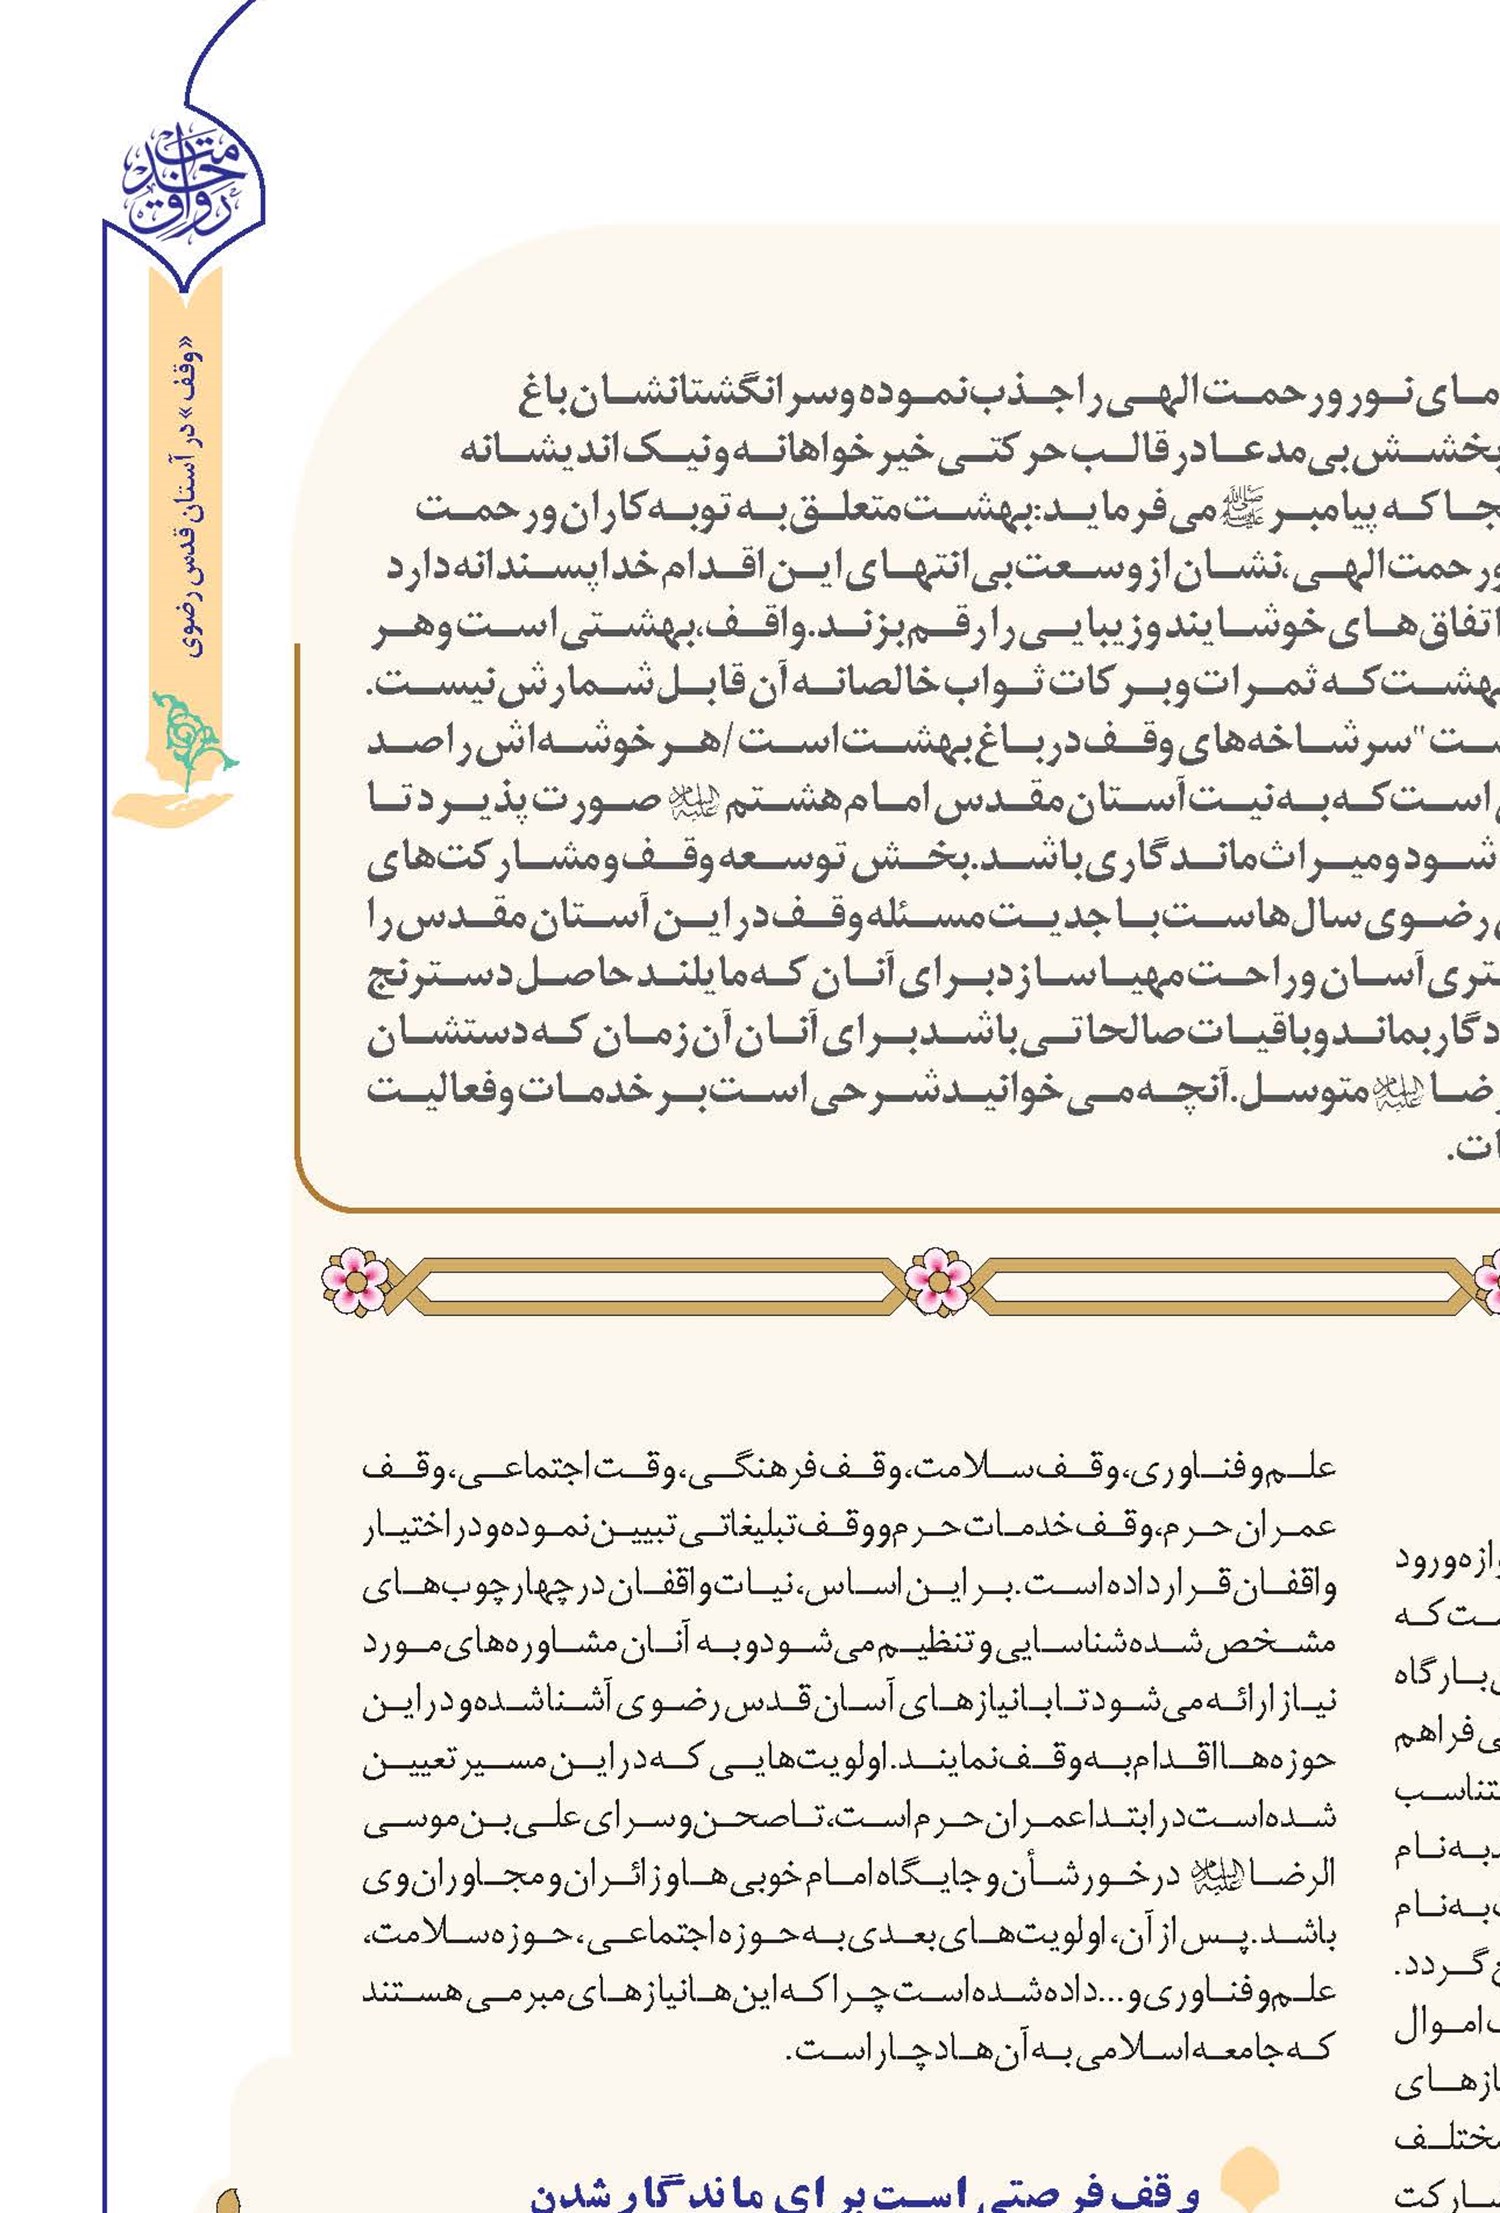 رواق خدمت
«وقف» در آستان قدس رضوی
نور و رحمت الهی را جذب نموده و سرانگشتانشان باغ
بخشش بی‌مدعا در قالب حرکتی خیرخواهانه و نیک‌اندیشانه
که پیامبر ﷺ می‌فرماید: بهشت متعلق به توبه‌کاران و رحمت
رحمت الهی، نشان از وسعت بی‌انتهای این اقدام خداپسندانه دارد
اتفاق‌های خوشایند و زیبایی را رقم بزند. واقف، بهشتی است و هر
که ثمرات و برکات ثواب خالصانه آن قابل شمارش نیست.
"سرشاخه‌های وقف در باغ بهشت است / هر خوشه‌اش را صد
است که به نیت آستان مقدس امام هشتم علیه‌السلام صورت پذیرد تا
شود و میراث ماندگاری باشد. بخش توسعه وقف و مشارکت‌های
رضوی سال‌هاست با جدیت مسئله وقف در این آستان مقدس را
آسان و راحت مهیا سازد برای آنان که مایلند حاصل دسترنج
بماند و باقیات صالحاتی باشد برای آنان آن زمان که دستشان
علیه‌السلام متوسل. آنچه می‌خوانید شرحی است بر خدمات و فعالیت
علم و فناوری، وقف سلامت، وقف فرهنگی، وقت اجتماعی، وقف
عمران حرم، وقف خدمات حرم و وقف تبلیغاتی تبیین نموده و در اختیار
واقفان قرار داده است. بر این اساس، نیات واقفان در چهارچوب‌های
مشخص شده شناسایی و تنظیم می‌شود و به آنان مشاوره‌های مورد
نیاز ارائه می‌شود تا با نیازهای آسان قدس رضوی آشنا شده و در این
حوزه‌ها اقدام به وقف نمایند. اولویت‌هایی که در این مسیر تعیین
شده است در ابتدا عمران حرم است، تا صحن و سرای علی بن موسی
الرضا علیه‌السلام در خور شأن و جایگاه امام خوبی‌ها و زائران و مجاوران وی
باشد. پس از آن، اولویت‌های بعدی به حوزه اجتماعی، حوزه سلامت،
علم و فناوری و... داده شده است چرا که این‌ها نیازهای مبرمی هستند
که جامعه اسلامی به آن‌ها دچار است.
وقف فرصتی است برای ماندگار شدن
ورود
که
بارگاه
فراهم
به نام
به نام
گردد.
اموال